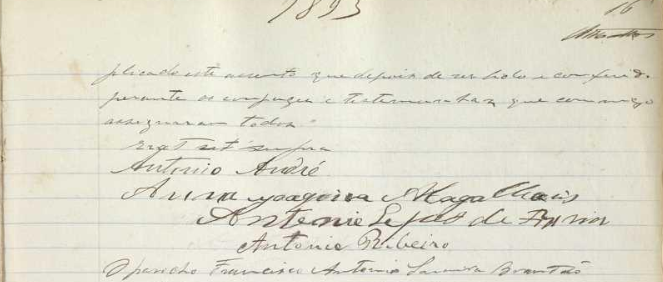 1893
16
plicado este assento que depois de ser lido e conferido
perante os conjuges e testemunhas, que commigo
assignaram todos.
Era ut supra
Antonio André
Anna Joaquina Magalhães
Antonio Ribeiro
O parocho Francisco Antonio Brandão